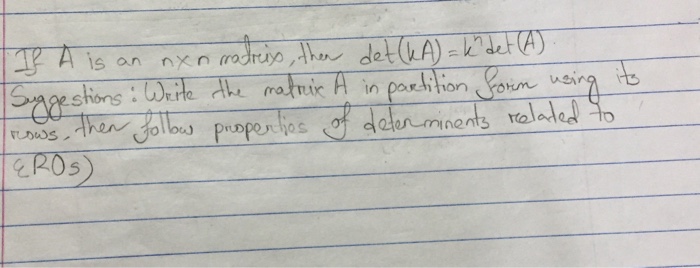 If A is an n×n matrix, then det(kA) = kⁿ det(A)
Suggestions: Write the matrix A in partition form using its
rows, then follow properties of determinents related to
EROs)